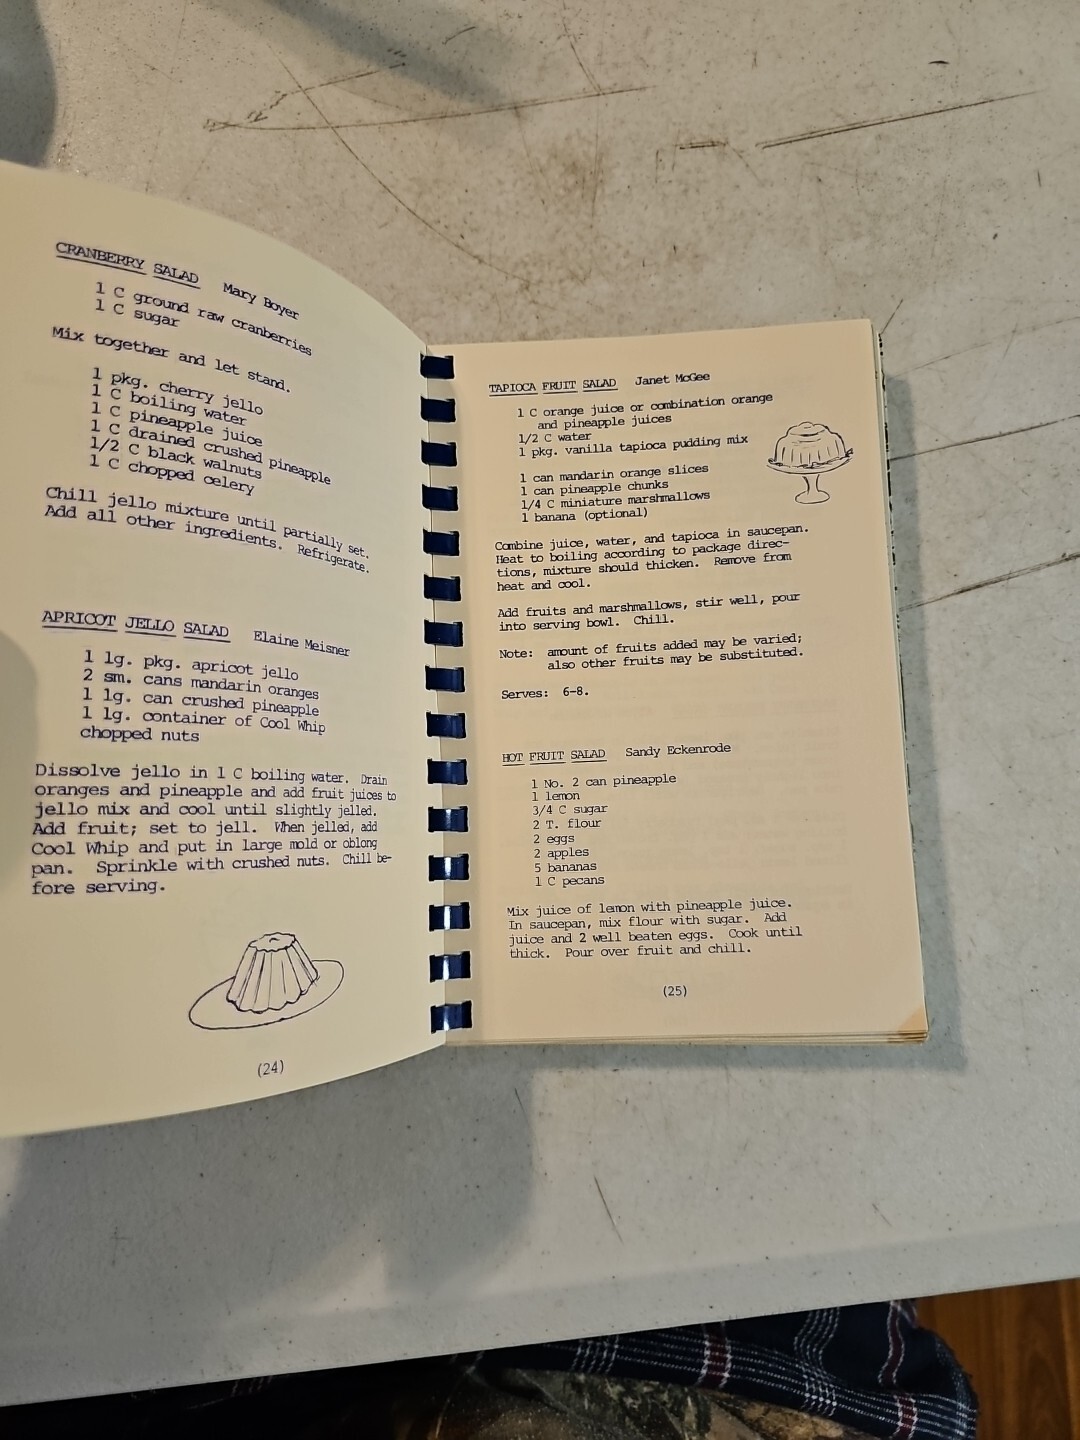 CRANBERRY SALAD Mary Boyer
1 C ground raw cranberries
1 C sugar
Mix together and let stand.
1 pkg. cherry jello
1 C boiling water
1 C pineapple juice
1 C drained crushed pineapple
1/2 C black walnuts
1 C chopped celery
Chill jello mixture until partially set.
Add all other ingredients. Refrigerate.
APRICOT JELLO SALAD Elaine Meisner
1 lg. pkg. apricot jello
2 sm. cans mandarin oranges
1 lg. can crushed pineapple
1 lg. container of Cool Whip
chopped nuts
Dissolve jello in 1 C boiling water. Drain
oranges and pineapple and add fruit juices to
jello mix and cool until slightly jelled.
Add fruit; set to jell. When jelled, add
Cool Whip and put in large mold or oblong
pan. Sprinkle with crushed nuts. Chill be-
fore serving.
(24)
TAPIOCA FRUIT SALAD Janet McGee
1 C orange juice or combination orange
and pineapple juices
1/2 C water
1 pkg. vanilla tapioca pudding mix
1 can mandarin orange slices
1 can pineapple chunks
1/4 C miniature marshmallows
1 banana (optional)
Combine juice, water, and tapioca in saucepan.
Heat to boiling according to package direc-
tions, mixture should thicken. Remove from
heat and cool.
Add fruits and marshmallows, stir well, pour
into serving bowl. Chill.
Note: amount of fruits added may be varied;
also other fruits may be substituted.
Serves: 6-8.
HOT FRUIT SALAD Sandy Eckenrode
1 No. 2 can pineapple
1 lemon
3/4 C sugar
2 T. flour
2 eggs
2 apples
5 bananas
1 C pecans
Mix juice of lemon with pineapple juice.
In saucepan, mix flour with sugar. Add
juice and 2 well beaten eggs. Cook until
thick. Pour over fruit and chill.
(25)